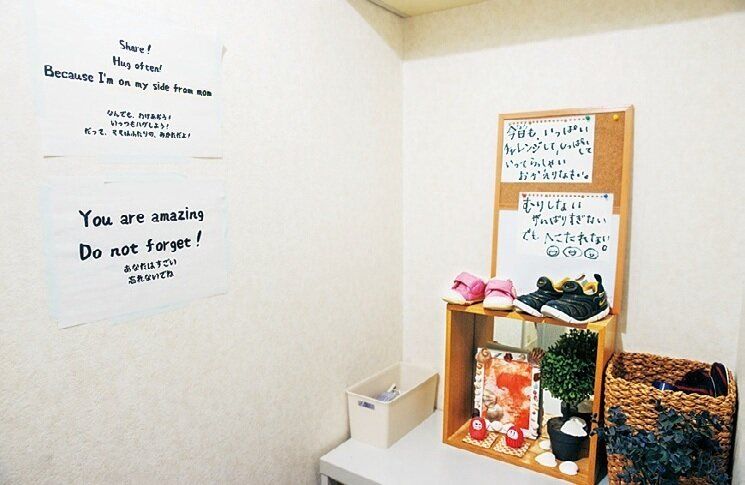 Share!
Hug often!
Because I'm on my side from mom
なんでも、わけあおう!
いっつもハグしよう!
だって、ママはふたりの、みかただよ!
You are amazing
Do not forget!
あなたはすごい
忘れないでね
今日も、いっぱい
チャレンジして、しっぱいして
いってらっしゃい
おかえりなさい。
むりしない
がんばりすぎない
でも、へこたれない。